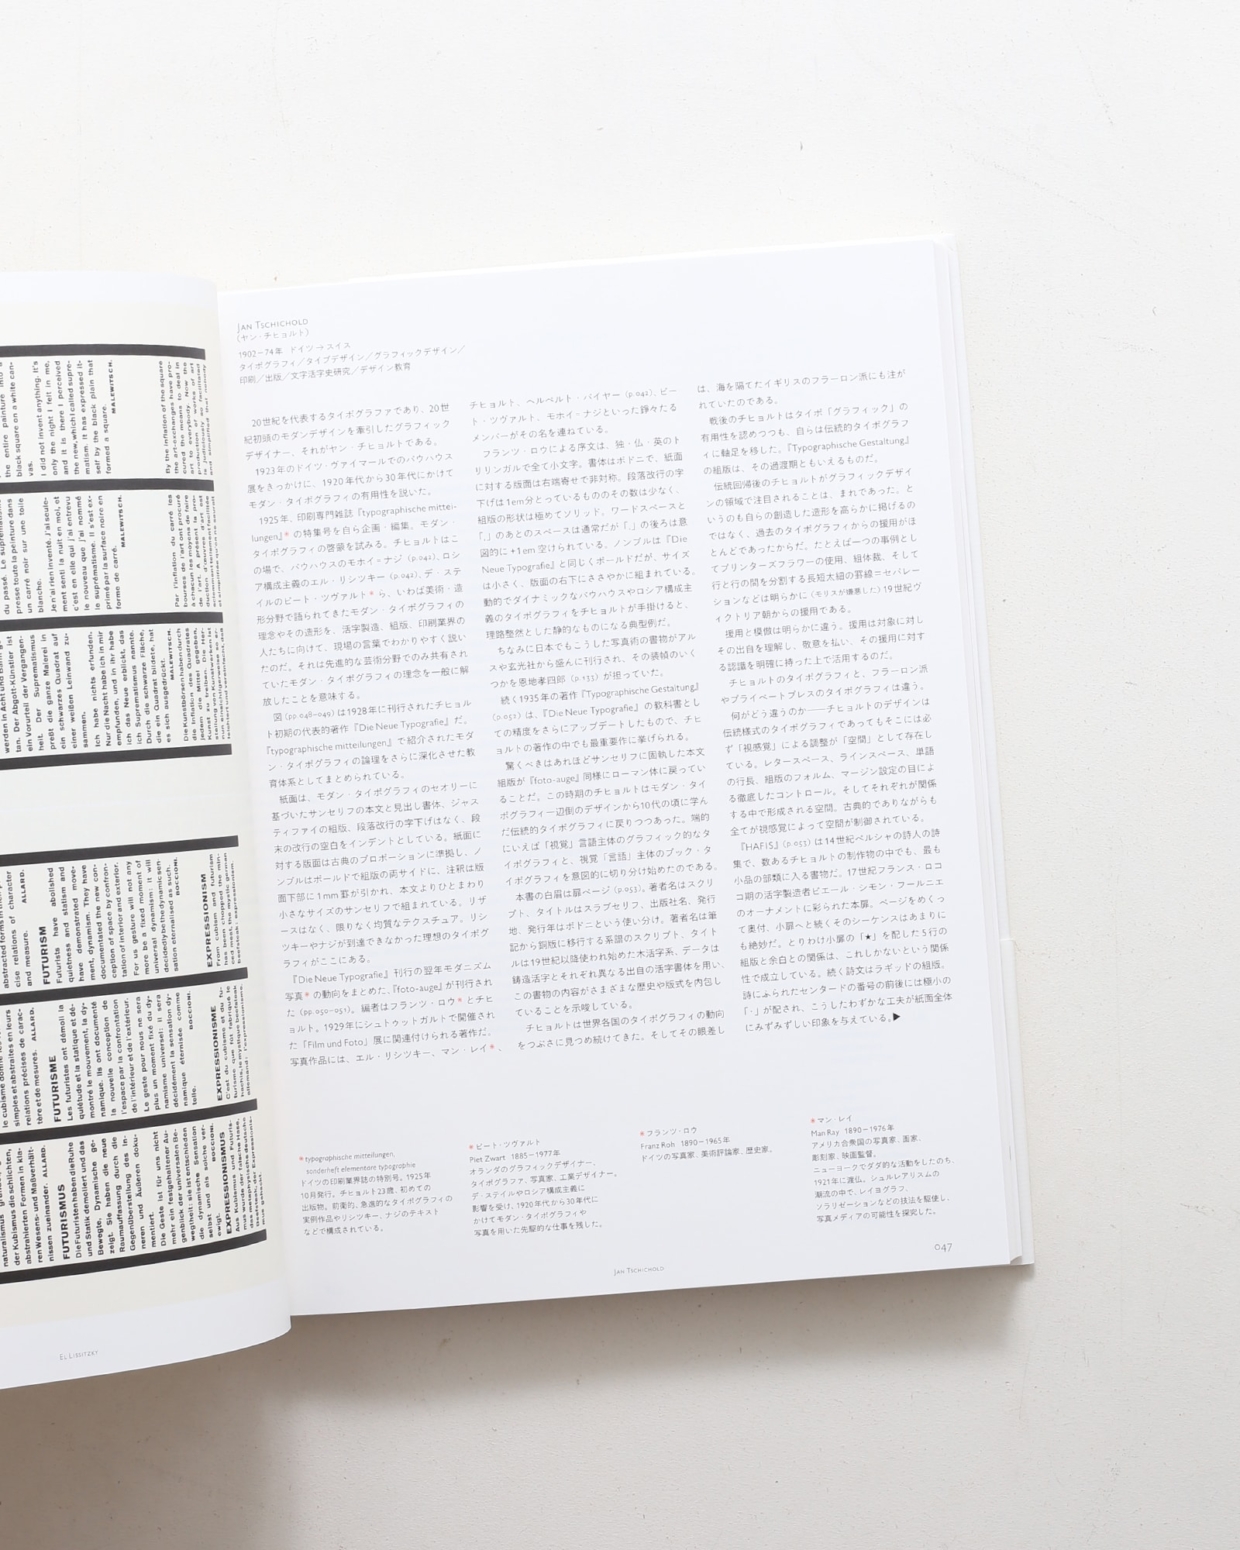 the entire painture into a
black square on a white can-
vas.
I did not invent anything. It's
only the night I felt in me,
and it is there I perceived
the new, which I called supre-
matism. It has expressed it-
self by the black plain that
formed a square.
MALEWITSCH.
By the inflation of the square
the art-exchanges have pro-
cured the means to deal in
art to everybody. Now the
production of works of art
du passé. Le suprématisme
presse toute la peinture dans
un carré noir sur une toile
blanche.
Je n'ai rien inventé. J'ai seule-
ment senti la nuit en moi, et
c'est en elle que j'ai entrevu
le nouveau que j'ai nommé
le suprématisme. Il s'est ex-
primé par la surface noire en
forme de carré.
MALEWITSCH.
Par l'inflation du carré les
bourses de l'art ont procuré
à chacun les moyens de faire
werden in Acht und Bann ge-
tan. Der Abgott-Künstler ist
ein Vorurteil der Vergangen-
heit. Der Suprematismus
preßt die ganze Malerei in
ein schwarzes Quadrat auf
einer weißen Leinwand zu-
sammen.
Ich habe nichts erfunden.
Nur die Nacht habe ich in mir
empfunden, und in ihr habe
ich das Neue erblickt, das
ich Suprematismus nannte.
Durch die schwarze Fläche,
die ein Quadrat bildete, hat
es sich ausgedrückt.
MALEWITSCH.
Die Kunstbörsen haben durch
die Inflation des Quadrates
jedem die Mittel gegeben,
Kunst zu treiben.
cise relations of character
and measure. ALLARD.
FUTURISM
Futurists have abolished
quietness and statism and
have demonstrated move-
ment, dynamism. They have
documentated the new con-
ception of space by confron-
tation of interior and exterior.
For us gesture will not any
more be a fixed moment of
universal dynamism: it will
decidedly be the dynamic sen-
sation eternalised as such.
BOCCIONI.
EXPRESSIONISM
From cubism and futurism
simples et abstraites en leurs
relations précises de carac-
tère et de mesures. ALLARD.
FUTURISME
Les futuristes ont démoli la
quiétude et la statique et dé-
montré le mouvement, la dy-
namique. Ils ont documenté
la nouvelle conception de
l'espace par la confrontation
de l'intérieur et de l'extérieur.
Le geste pour nous ne sera
plus un moment fixé du dy-
namisme universel: il sera
décidément la sensation dy-
namique éternisée comme
telle. BOCCIONI.
EXPRESSIONISME
C'est du cubisme et du fu-
der Kubismus die schlichten,
abstrahierten Formen in kla-
ren Wesens- und Maßverhält-
nissen zueinander. ALLARD.
FUTURISMUS
Die Futuristen haben die Ruhe
und Statik demoliert und das
Bewegte, Dynamische ge-
zeigt. Sie haben die neue
Raumauffassung durch die
Gegenüberstellung des In-
neren und Äußeren doku-
mentiert.
Die Geste ist für uns nicht
mehr ein festgehaltener Au-
genblick der universalen Be-
wegtheit: sie ist entschieden
die dynamische Sensation
selbst und als solche ver-
ewigt. BOCCIONI.
EXPRESSIONISMUS
Aus Kubismus und Futuris-
EL LISSITZKY
JAN TSCHICHOLD
(ヤン・チヒョルト)
1902–74年 ドイツ→スイス
タイポグラフィ／タイプデザイン／グラフィックデザイン／
印刷／出版／文字活字史研究／デザイン教育
20世紀を代表するタイポグラファであり、20世
紀初頭のモダンデザインを牽引したグラフィック
デザイナー、それがヤン・チヒョルトである。
1923年のドイツ・ヴァイマールでのバウハウス
展をきっかけに、1920年代から30年代にかけて
モダン・タイポグラフィの有用性を説いた。
1925年、印刷専門雑誌『typographische mittei-
lungen』* の特集号を自ら企画・編集、モダン・
タイポグラフィの啓蒙を試みる。チヒョルトはこ
の場で、バウハウスのモホイ・ナジ (p.041)、ロシ
ア構成主義のエル・リシツキー (p.042)、デ・ステ
イルのピート・ツヴァルト* ら、いわば美術・造
形分野で語られてきたモダン・タイポグラフィの
理念やその造形を、活字製造、組版、印刷業界の
人たちに向けて、現場の言葉でわかりやすく説い
たのだ。それは先進的な芸術分野でのみ共有され
ていたモダン・タイポグラフィの理念を一般に解
放したことを意味する。
図 (pp.048–049) は1928年に刊行されたチヒョル
ト初期の代表的著作『Die Neue Typografie』だ。
『typographische mitteilungen』で紹介されたモダ
ン・タイポグラフィの論理をさらに深化させた教
育体系としてまとめられている。
紙面は、モダン・タイポグラフィのセオリーに
基づいたサンセリフの本文と見出し書体、ジャス
ティファイの組版、段落改行の字下げはなく、段
末の改行の空白をインデントとしている。紙面に
対する版面は古典のプロポーションに準拠し、ノ
ンブルはボールドで組版の両サイドに、注釈は版
面下部に1mm罫が引かれ、本文よりひとまわり
小さなサイズのサンセリフで組まれている。リザ
ースはなく、限りなく均質なテクスチュア、リシ
ツキーやナジが到達できなかった理想のタイポグ
ラフィがここにある。
『Die Neue Typografie』刊行の翌年モダニズム
写真* の動向をまとめた、『foto-auge』が刊行され
た (pp.050–051)。編者はフランツ・ロウ* とチヒ
ョルト。1929年にシュトゥットガルトで開催され
た「Film und Foto」展に関連付けられる著作だ。
写真作品には、エル・リシツキー、マン・レイ*、
チヒョルト、ヘルベルト・バイヤー (p.042)、ピー
ト・ツヴァルト、モホイ・ナジといった錚々たる
メンバーがその名を連ねている。
フランツ・ロウによる序文は、独・仏・英のト
リリンガルで全て小文字。書体はボドニで、紙面
に対する版面は右端寄せで非対称。段落改行の字
下げは1em分とっているもののその数は少なく、
組版の形状は極めてソリッド。ワードスペースと
「,」のあとのスペースは通常だが「.」の後ろは意
図的に+1em空けられている。ノンブルは『Die
Neue Typografie』と同じくボールドだが、サイズ
は小さく、版面の右下にささやかに組まれている。
動的でダイナミックなバウハウスやロシア構成主
義のタイポグラフィをチヒョルトが手掛けると、
理路整然とした静的なものになる典型例だ。
ちなみに日本でもこうした写真術の書物がアル
スや玄光社から盛んに刊行され、その装幀のいく
つかを恩地孝四郎 (p.133) が担っていた。
続く1935年の著作『Typographische Gestaltung』
(p.052) は、『Die Neue Typografie』の教科書とし
ての精度をさらにアップデートしたもので、チヒ
ョルトの著作の中でも最重要作に挙げられる。
驚くべきはあれほどサンセリフに固執した本文
組版が『foto-auge』同様にローマン体に戻ってい
ることだ。この時期のチヒョルトはモダン・タイ
ポグラフィ一辺倒のデザインから10代の頃に学ん
だ伝統的タイポグラフィに戻りつつあった。端的
にいえば「視覚」言語主体のグラフィック的なタ
イポグラフィと、視覚「言語」主体のブック・タ
イポグラフィを意図的に切り分け始めたのである。
本書の白眉は扉ページ (p.052)。著者名はスクリ
プト、タイトルはスラブセリフ、出版社名、発行
地、発行年はボドニという使い分け。著者名は筆
記から銅版に移行する系譜のスクリプト、タイト
ルは19世紀以降使われ始めた木活字系、データは
鋳造活字とそれぞれ異なる出自の活字書体を用い、
この書物の内容がさまざまな歴史や版式を内包し
ていることを示唆している。
チヒョルトは世界各国のタイポグラフィの動向
をつぶさに見つめ続けてきた。そしてその眼差し
は、海を隔てたイギリスのフラーロン派にも注が
れていたのである。
戦後のチヒョルトはタイポ「グラフィック」の
有用性を認めつつも、自らは伝統的タイポグラフ
ィに軸足を移した。『Typographische Gestaltung』
の組版は、その過渡期ともいえるものだ。
伝統回帰後のチヒョルトがグラフィックデザイ
ンの領域で注目されることは、まれであった。と
いうのも自らの創造した造形を高らかに掲げるの
ではなく、過去のタイポグラフィからの援用がほ
とんどであったからだ。たとえば一つの事例とし
てプリンターズフラワーの使用、組体裁、そして
行と行の間を分割する長短太細の罫線＝セパレー
ションなどは明らかに（モリスが嫌悪した）19世紀ヴ
ィクトリア朝からの援用である。
援用と模倣は明らかに違う。援用は対象に対し
その出目を理解し、敬意を払い、その援用に対す
る認識を明確に持った上で活用するのだ。
チヒョルトのタイポグラフィと、フラーロン派
やプライベートプレスのタイポグラフィは違う。
何がどう違うのか──チヒョルトのデザインは
伝統様式のタイポグラフィであってもそこには必
ず「視感覚」による調整が「空間」として存在し
ている。レタースペース、ラインスペース、単語
の行長、組版のフォルム、マージン設定の目によ
る徹底したコントロール。そしてそれぞれが関係
する中で形成される空間。古典的でありながらも
全てが視感覚によって空間が制御されている。
『HAFIS』(p.053) は14世紀ペルシャの詩人の詩
集で、数あるチヒョルトの制作物の中でも、最も
小品の部類に入る書物だ。17世紀フランス・ロココ
期の活字製造者ピエール・シモン・フールニエ
のオーナメントに彩られた本扉。ページをめくっ
て奥付、小扉へと続くそのシーケンスはあまりに
も絶妙だ。とりわけ小扉の「★」を配した5行の
組版と余白との関係は、これしかないという関係
性で成立している。続く詩文はラギッドの組版。
詩にふられたセンタードの番号の前後には極小の
「·」が配され、こうしたわずかな工夫が紙面全体
にみずみずしい印象を与えている。▶
* typographische mitteilungen,
sonderheft elementare typographie
ドイツの印刷業界誌の特別号。1925年
10月発行。チヒョルト23歳、初めての
出版物。前衛的、急進的なタイポグラフィの
実例作品やリシツキー、ナジのテキスト
などで構成されている。
* ピート・ツヴァルト
Piet Zwart 1885–1977年
オランダのグラフィックデザイナー、
タイポグラファ、写真家、工業デザイナー。
デ・ステイルやロシア構成主義に
影響を受け、1920年代から30年代に
かけてモダン・タイポグラフィや
写真を用いた先駆的な仕事を残した。
* フランツ・ロウ
Franz Roh 1890–1965年
ドイツの写真家、美術評論家、歴史家。
* マン・レイ
Man Ray 1890–1976年
アメリカ合衆国の写真家、画家、
彫刻家、映画監督。
ニューヨークでダダ的な活動をしたのち、
1921年に渡仏。シュルレアリスムの
潮流の中で、レイヨグラフ、
ソラリゼーションなどの技法を駆使し、
写真メディアの可能性を探究した。
JAN TSCHICHOLD
047